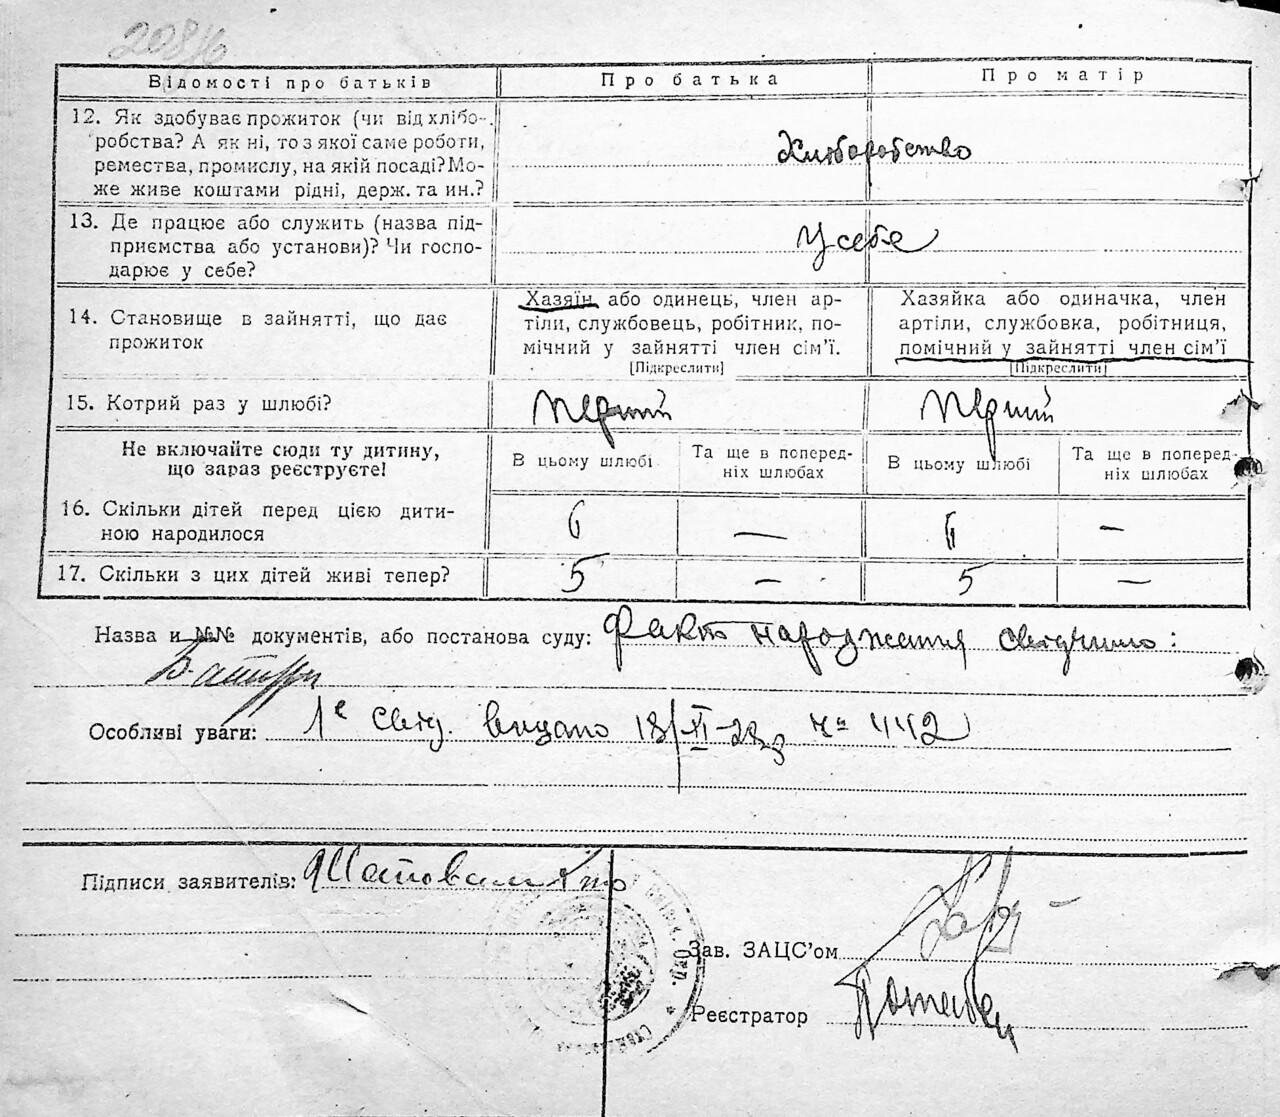 208/6
Відомості про батьків
Про батька
Про матір
12. Як здобуває прожиток (чи від хлібо-
робства? А як ні, то з якої саме роботи,
ремества, промислу, на якій посаді? Мо-
же живе коштами рідні, держ. та ин.?
Хліборобство
13. Де працює або служить (назва під-
приємства або установи)? Чи госпо-
дарює у себе?
У себе
14. Становище в зайнятті, що дає
прожиток
Хазяїн або одинець, член ар-
тіли, службовець, робітник, по-
мічний у зайнятті член сім'ї.
[Підкреслити]
Хазяйка або одиначка, член
артіли, службовка, робітниця,
помічний у зайнятті член сім'ї
[Підкреслити]
15. Котрий раз у шлюбі?
перший
перший
Не включайте сюди ту дитину,
що зараз реєструєте!
В цьому шлюбі
Та ще в поперед-
ніх шлюбах
В цьому шлюбі
Та ще в поперед-
ніх шлюбах
16. Скільки дітей перед цією дити-
ною народилося
6 — 6 —
17. Скільки з цих дітей живі тепер?
5 — 5 —
Назва и №№ документів, або постанова суду: Факт народження свідчило:
Особливі уваги: 1е свід. видано 18/XI-28р № 442
Підписи заявителів:
Зав. ЗАЦС'ом
Реєстратор